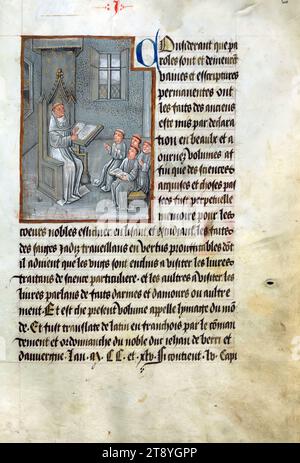 Considerant que pa
roles sont et demeurēt
vaines et escriptures
permanentes ont
les faits des anciens
este mis par declara
tion en beaulx et a
ournez volumes a
fin que des sciences
acquises et choses pas
sees fut perpetuelle
memoire pour les
coeurs nobles en lisant et
des saiges Jadiz travaillans en vertus prouffitables dōt
il advient que les ungs sont enclins a visiter les livres
traitans de science particuliere et les aultres a visiter les
livres parlans de faits darmes et damours ou aultre
ment Et est che present volume appelle lymage du mō
de Et fut translate de latin en franchois par le cōman
dement et ordonnance du noble duc Jehan de berri et
dauvergne lan M CC et xlv Si contient lv Capi
alamy
2T8YGPP